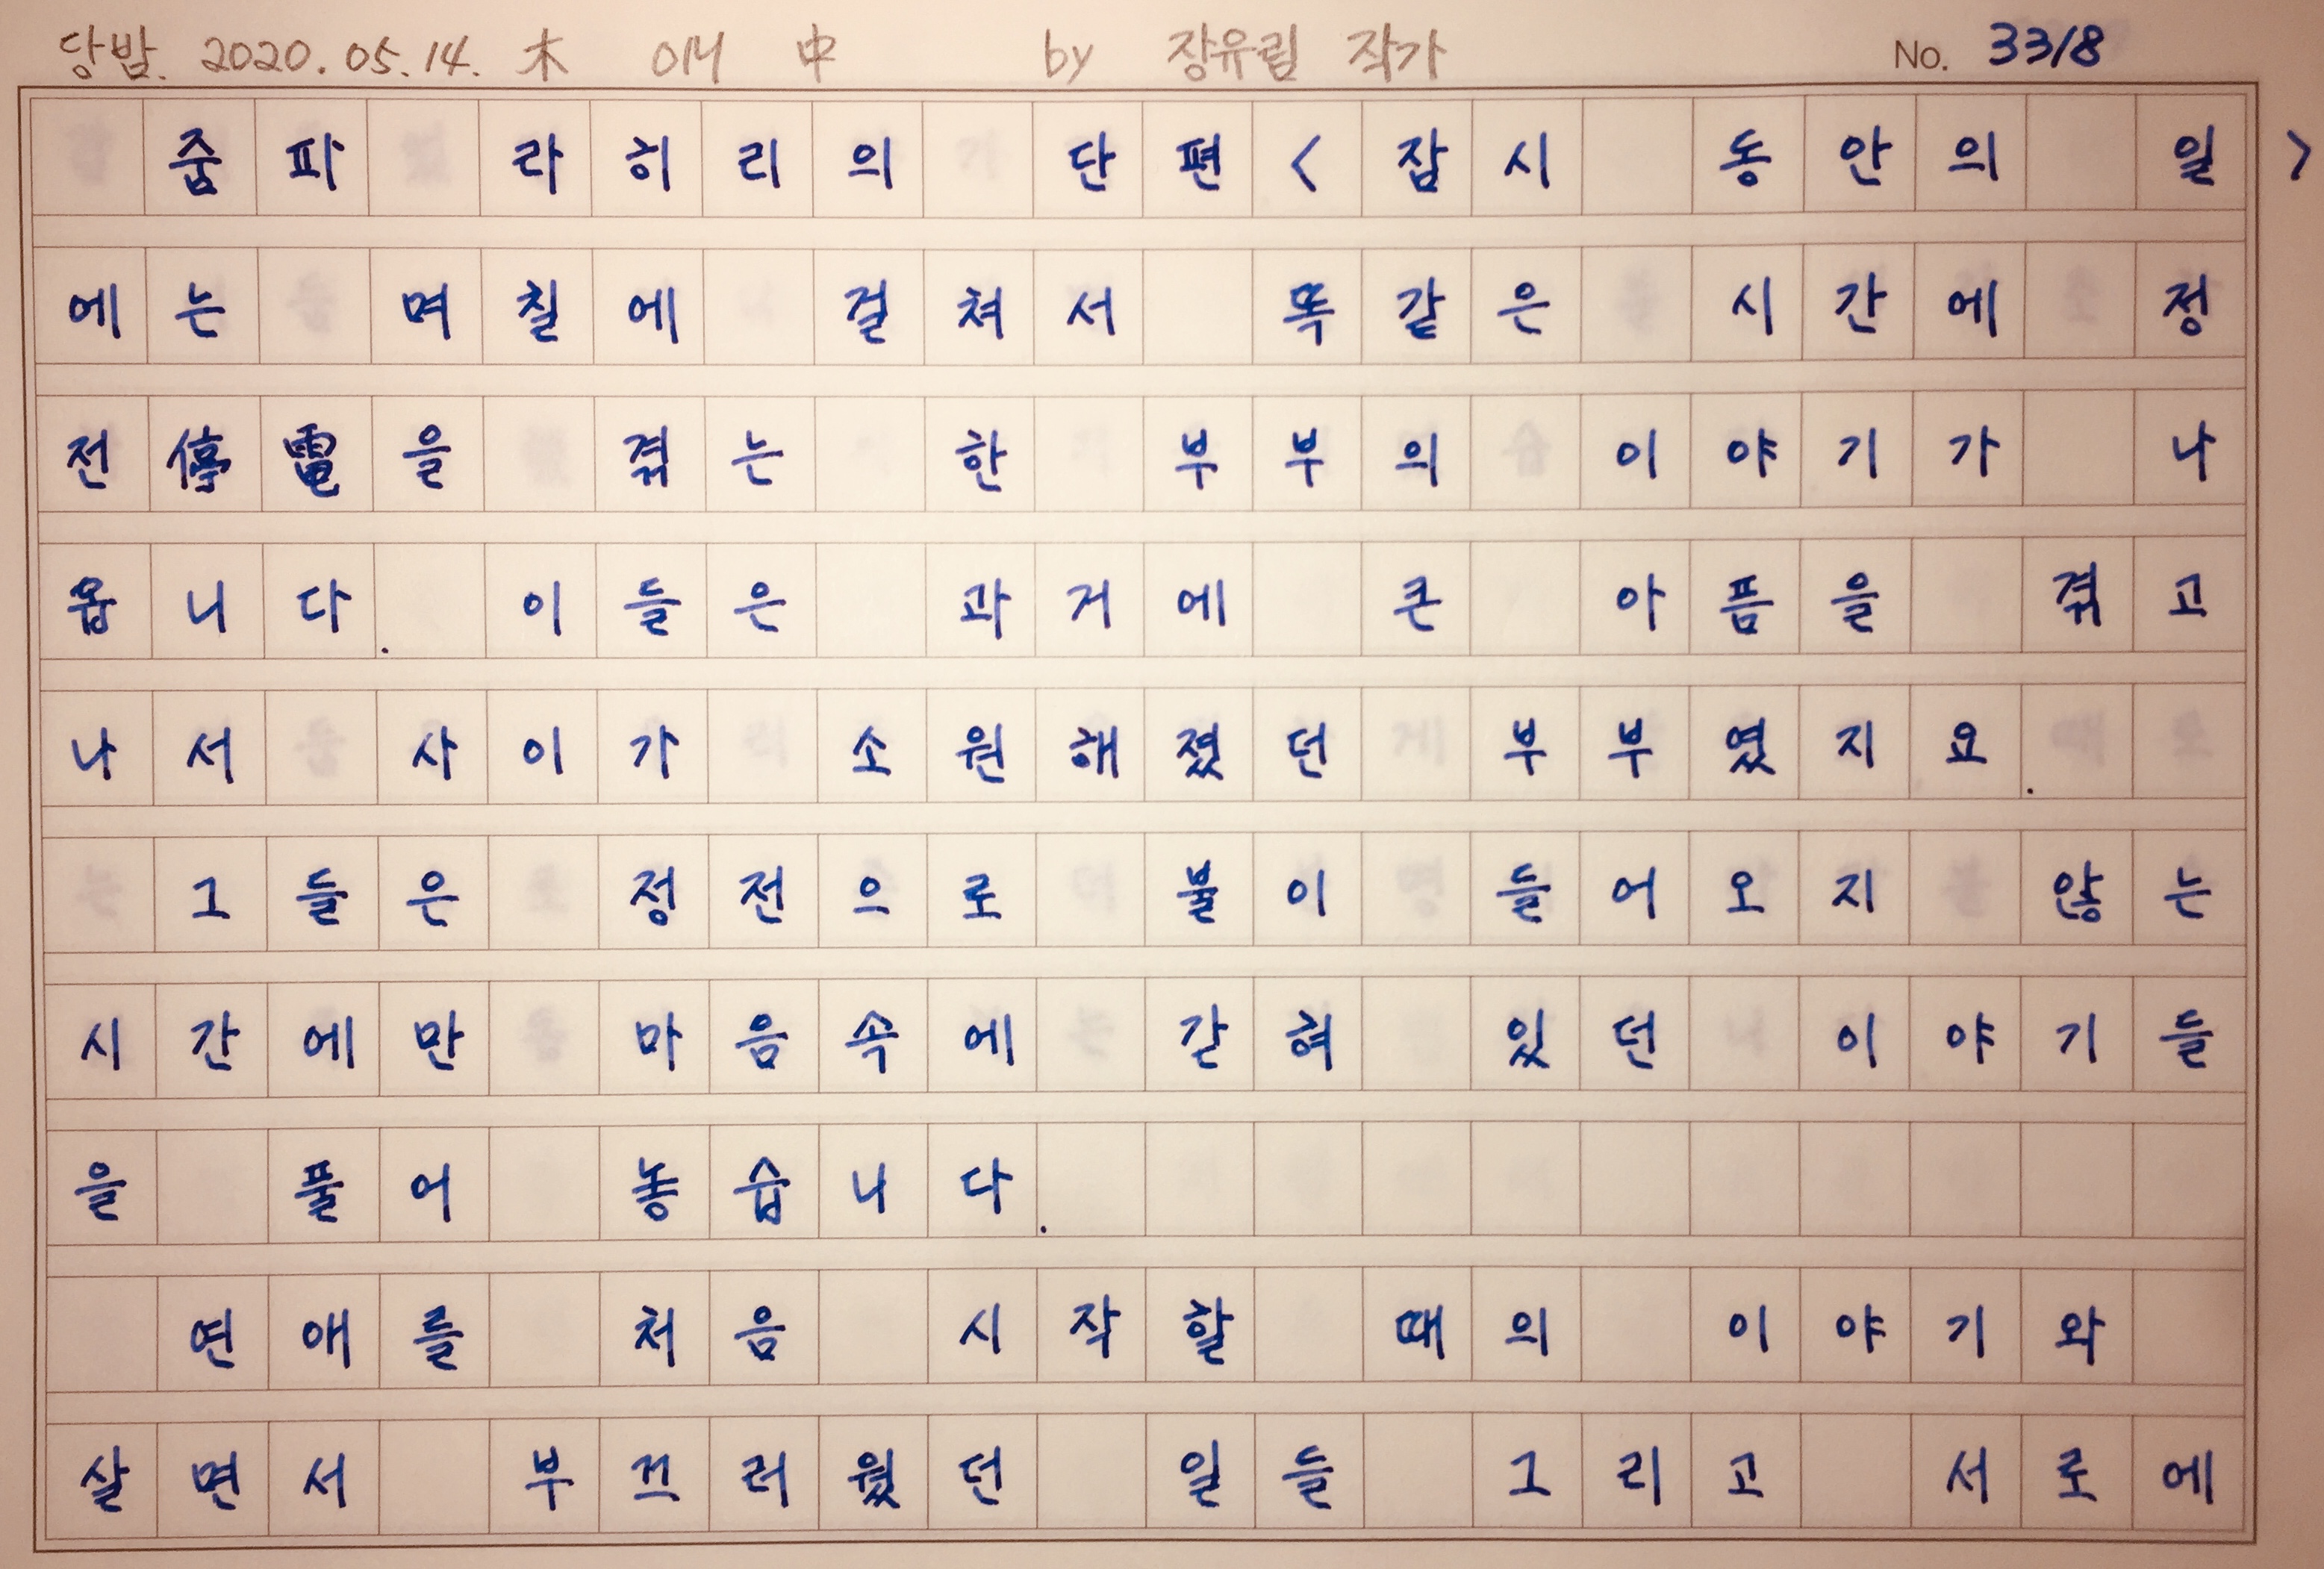 당밤. 2020.05.14. 木 에세 中 by 장유림 작가 No. 33/8
줌파 라히리의 단편<잠시 동안의 일>
에는 며칠에 걸쳐서 똑같은 시간에 정
전停電을 겪는 한 부부의 이야기가 나
옵니다. 이들은 과거에 큰 아픔을 겪고
나서 사이가 소원해졌던 부부였지요.
그들은 정전으로 불이 들어오지 않는
시간에만 마음속에 갇혀 있던 이야기들
을 풀어 놓습니다.
연애를 처음 시작할 때의 이야기와
살면서 부끄러웠던 일들 그리고 서로에